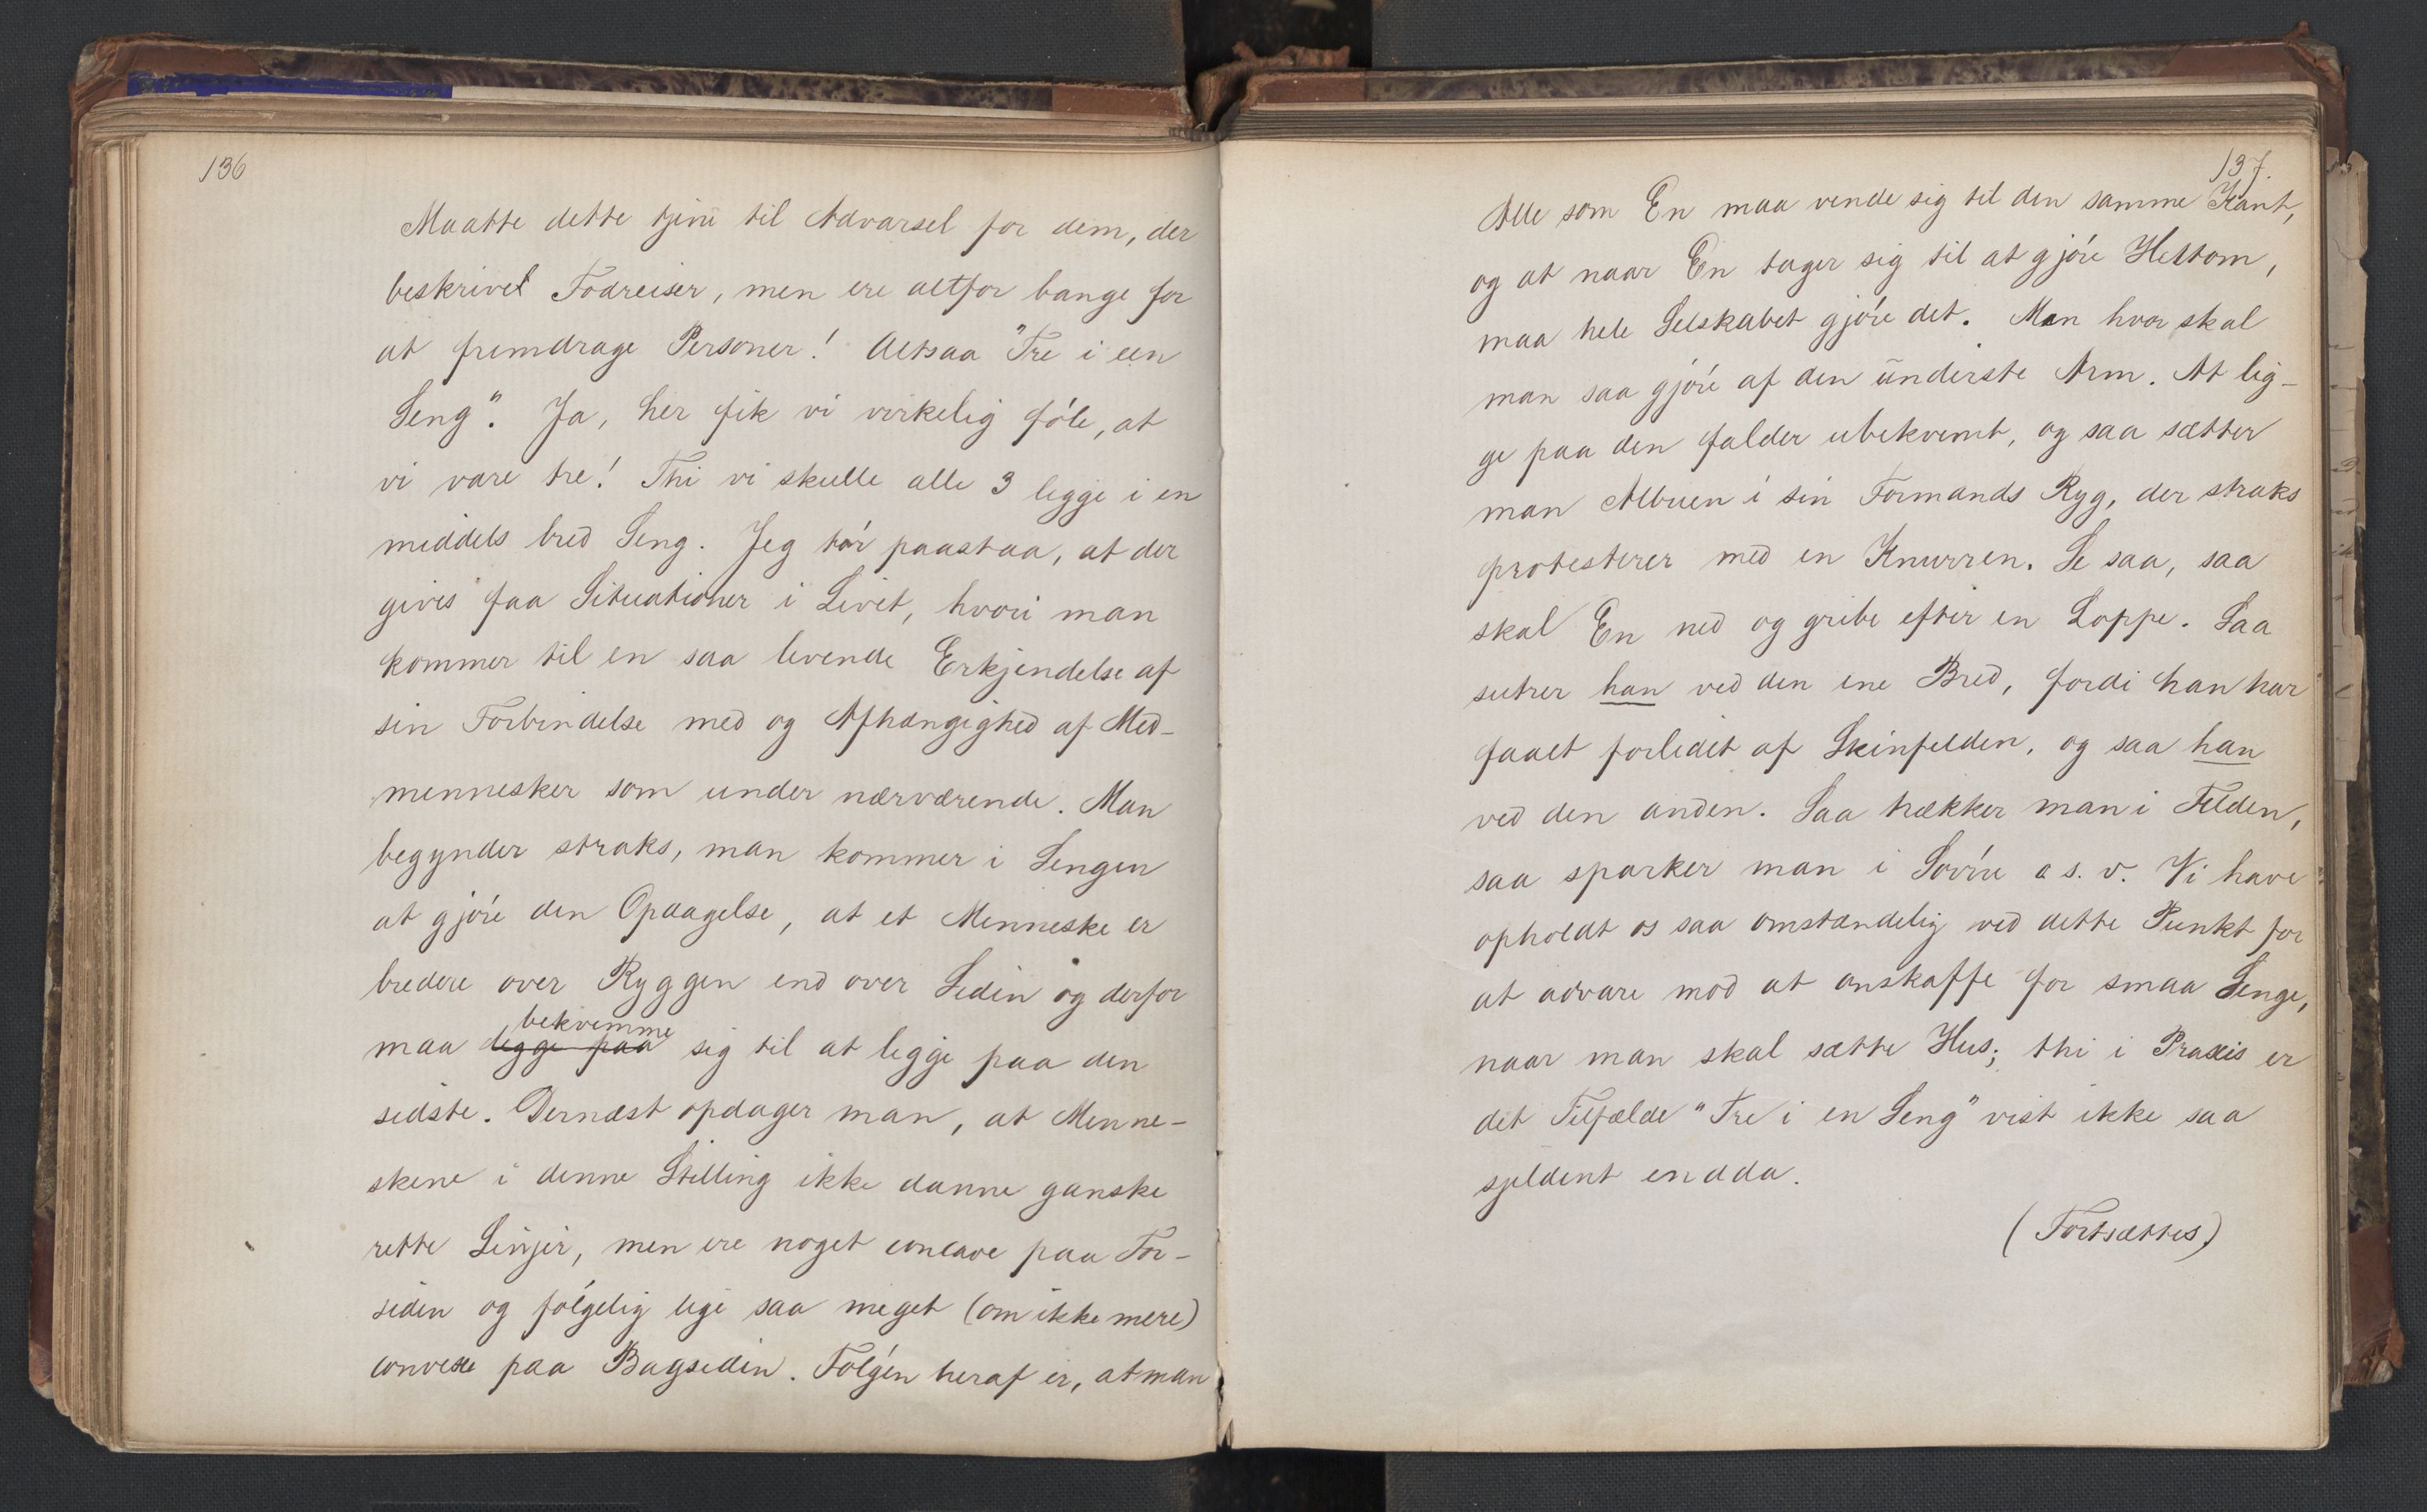 136
Maatte dette tjene til Advarsel for dem, der
beskrivel Fodreiser, men ere altfor bange for
at fremdrage Personer! Altsaa "Tre i een
Seng". Ja, her fik vi virkelig føle, at
vi vare tre! Thi vi skulle alle 3 legge i en
middels bred Seng. Jeg tør paastaa, at der
gives faa Situationer i Livet, hvori man
kommer til en saa levende Erkjendelse af
sin Forbindelse med og Afhængighed af Med-
mennesker som under nærværende. Man
begynder straks, man kommer i Sengen
at gjøre den Opdagelse, at et Menneske er
bredere over Ryggen end over Siden og derfor
maa legge paa bekvemme sig til at legge paa den
sidste. Dernæst opdager man, at Menne-
skene i denne Stilling ikke danne ganske
rette Linjer, men ere noget concave paa For-
siden og følgelig lige saa meget (om ikke mere)
convexe paa Bagsiden. Følgen heraf er, at man
137.
Alle som En maa vende sig til den samme Kant,
og at naar En tager sig til at gjøre Heltom,
maa hele Selskabet gjøre det. Men hvor skal
man saa gjøre af den underste Arm. At lig-
ge paa den falder ubekvemt, og saa sætter
man Albuen i sin Formands Ryg, der straks
protesterer med en Knurren. Se saa, saa
skal En ned og gribe efter en Loppe. Saa
sutrer han ved den ene Bred, fordi han har
faaet forlidet af Skinfelden, og saa han
ved den anden. Saa trækker man i Felden,
saa sparker man i Søvne o s. v. Vi have
opholdt os saa omstændelig ved dette Punkt for
at advare mod at anskaffe for smaa Senge,
naar man skal sætte Hus; thi i Praxis er
det Tilfælde "Tre i en Seng" vist ikke saa
sjeldent endda.
(Fortsættes)